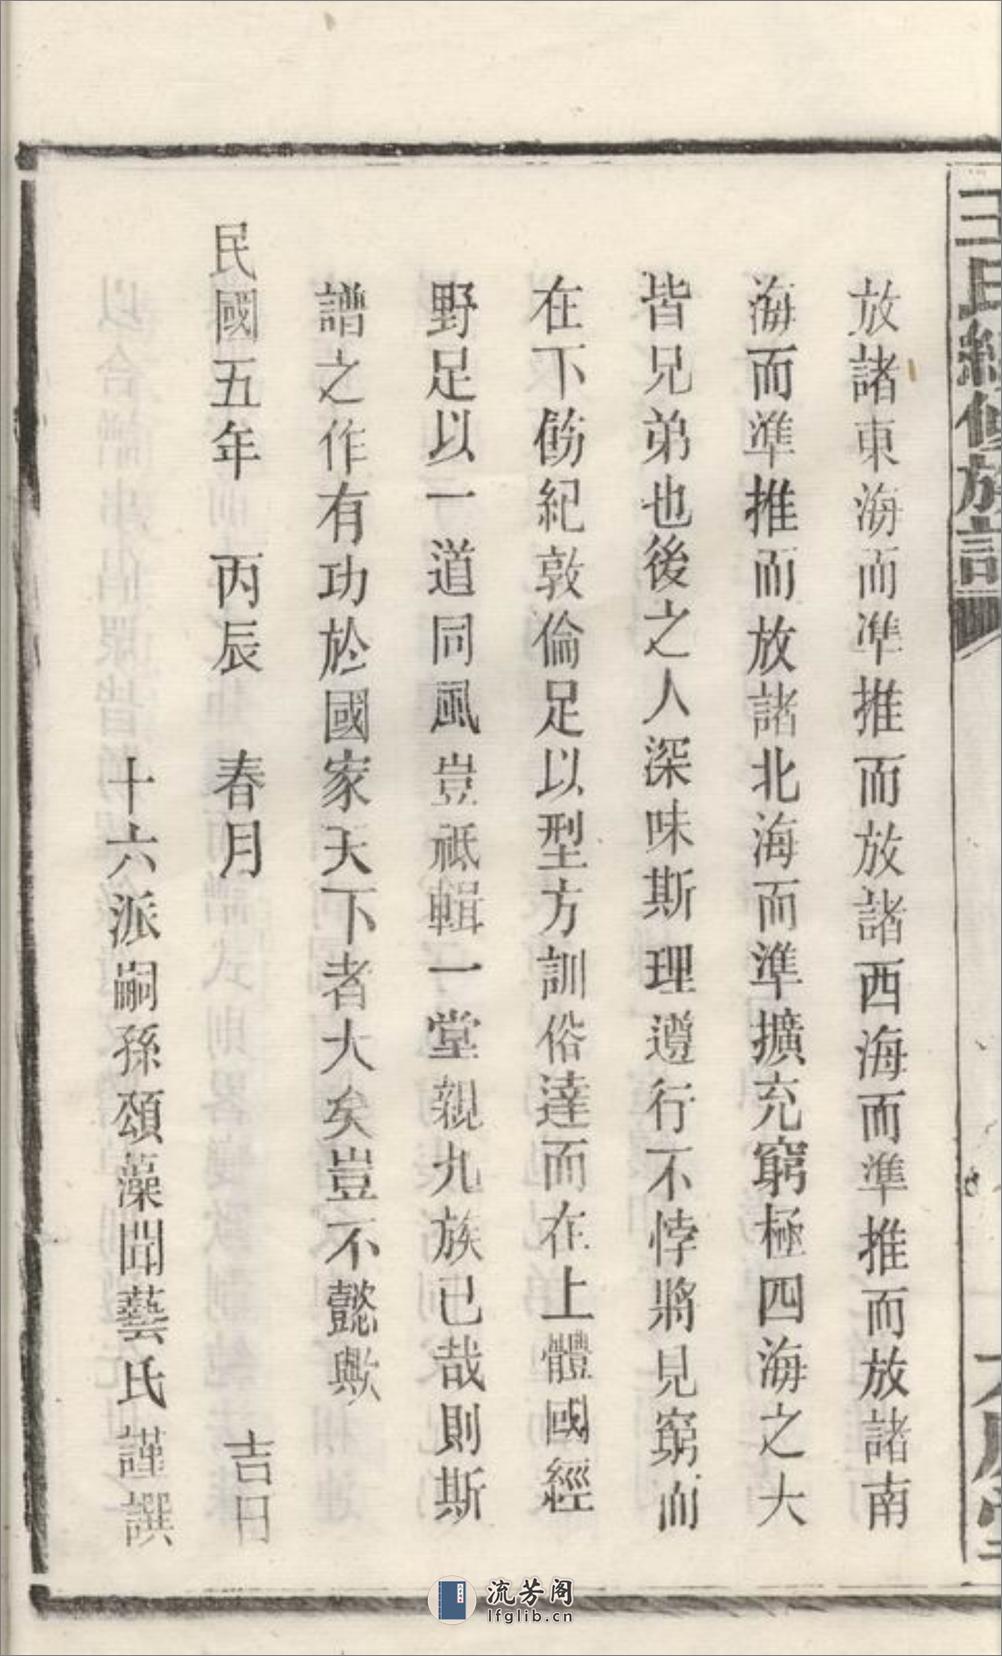 王氏續修族譜
放諸東海而準推而放諸西海而準推而放諸南
海而準推而放諸北海而準擴充窮極四海之大
皆兄弟也後之人深味斯理遵行不悖將見窮而
在下飭紀敦倫足以型方訓俗達而在上體國經
野足以一道同風豈祗輯一堂親九族已哉則斯
譜之作有功於國家天下者大矣豈不懿歟
民國五年 丙辰 春月 吉日
十六派嗣孫頌藻聞藝氏謹譔
流芳阁
lfglib.cn